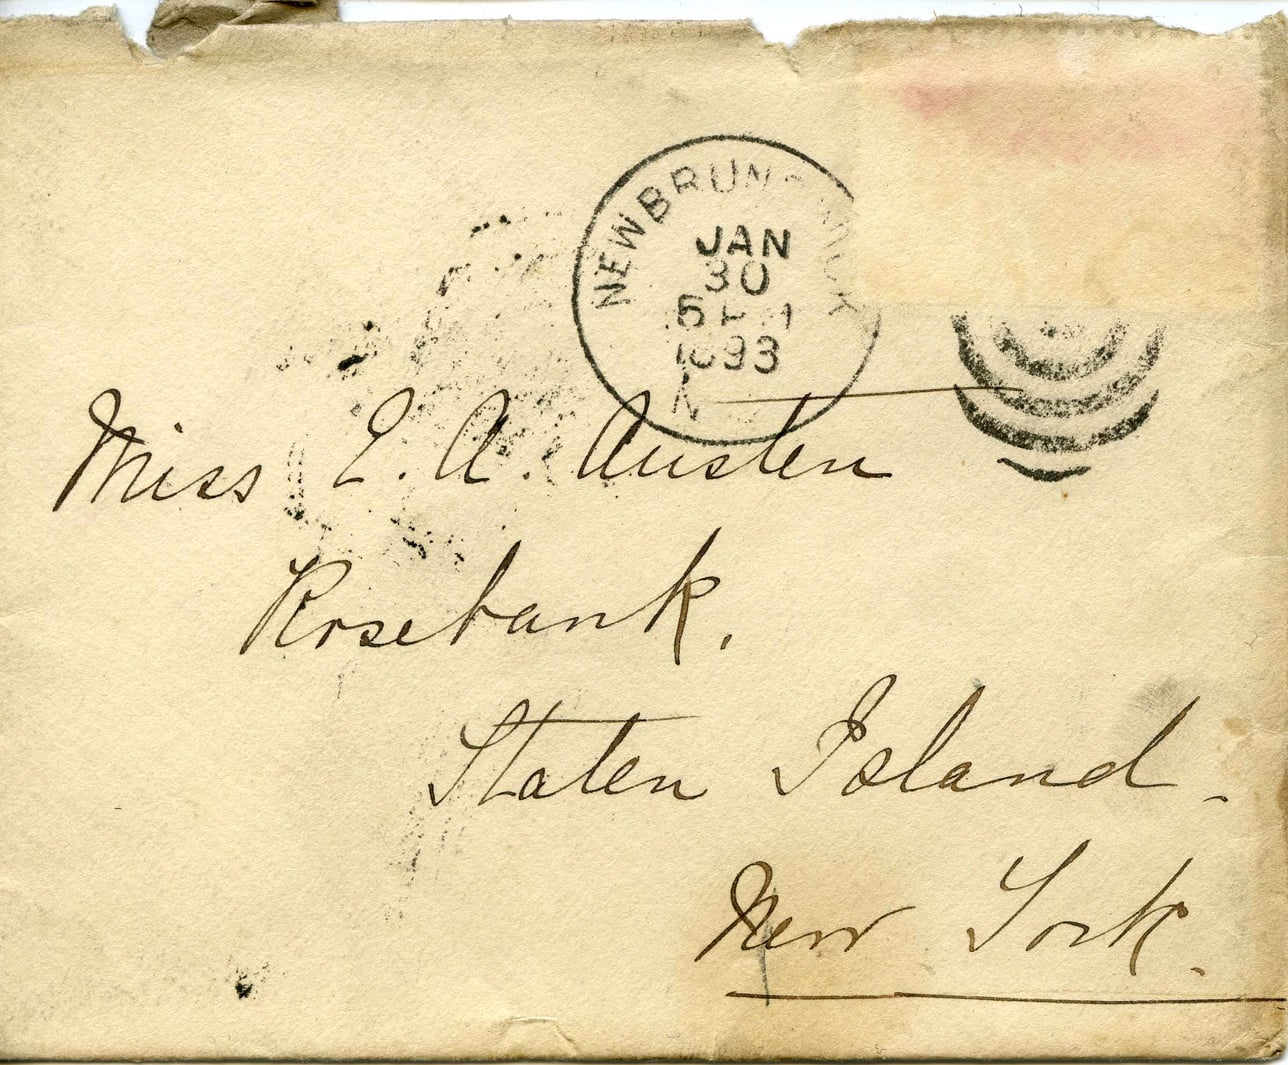 NEW BRUNSWICK
JAN
30
5 PM
1893
N
Miss E. A. Austen
Rosebank.
Staten Island.
New York.